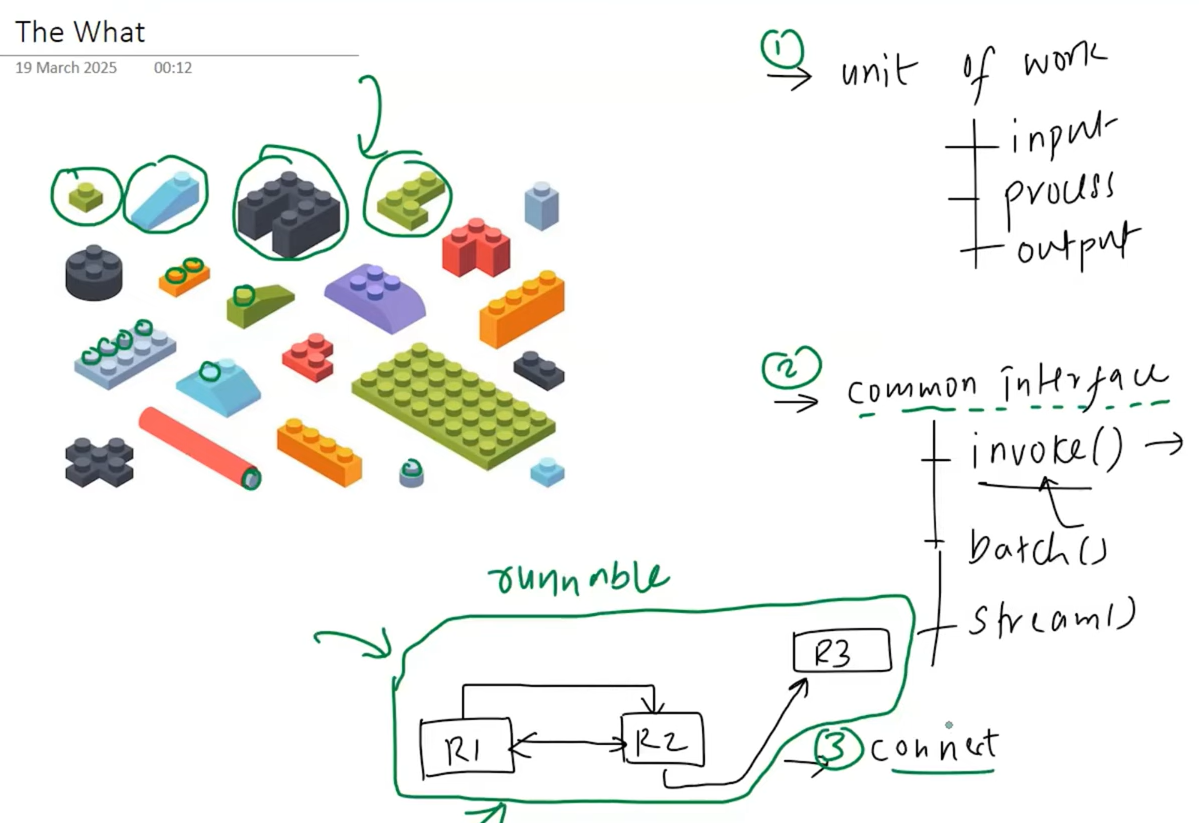 The What
19 March 2025 00:12
1
unit of work
input
process
output
2
common interface
invoke()
batch()
stream()
runnable
R3
R1
R2
3 connect